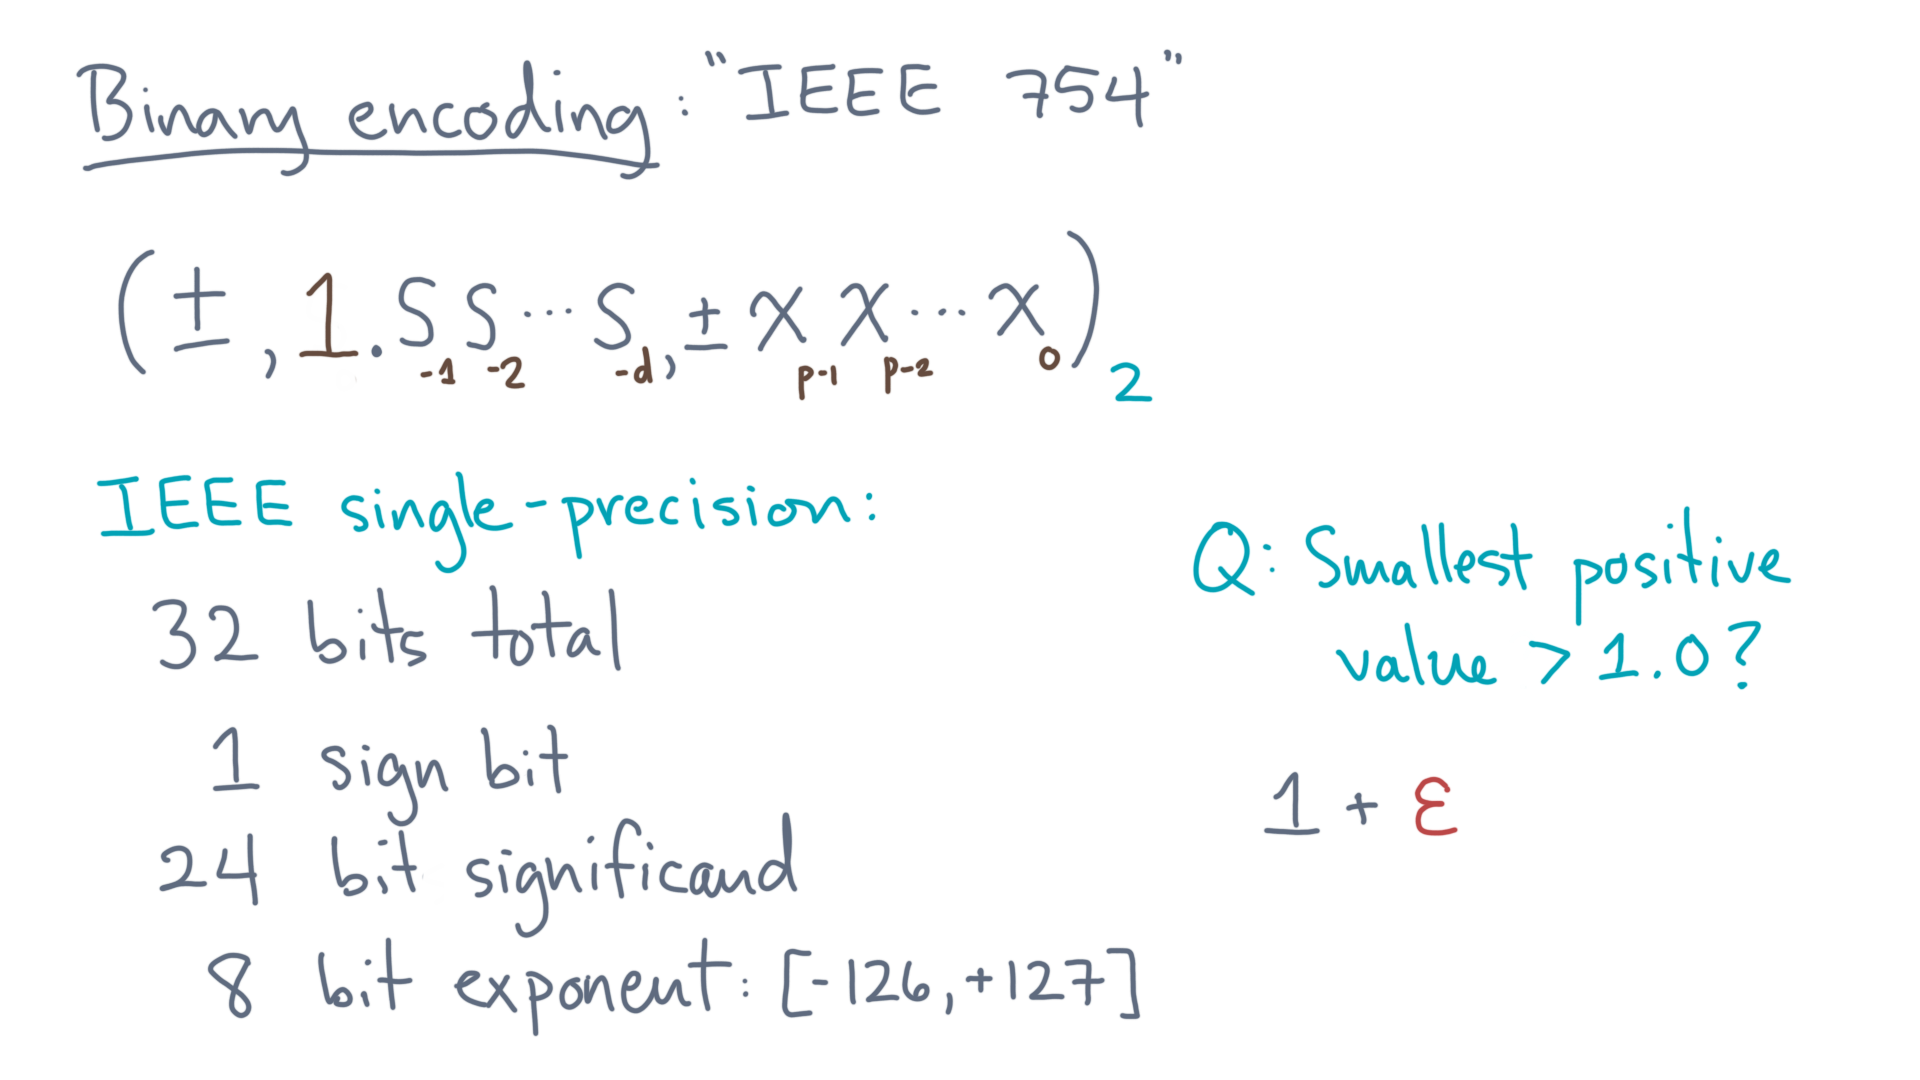 Binary encoding: "IEEE 754"
(±, 1.SS...S, ±XX...X)₂
-1 -2 -d p-1 p-2 0
IEEE single-precision:
32 bits total
1 sign bit
24 bit significand
8 bit exponent: [-126, +127]
Q: Smallest positive
value > 1.0?
1 + ε